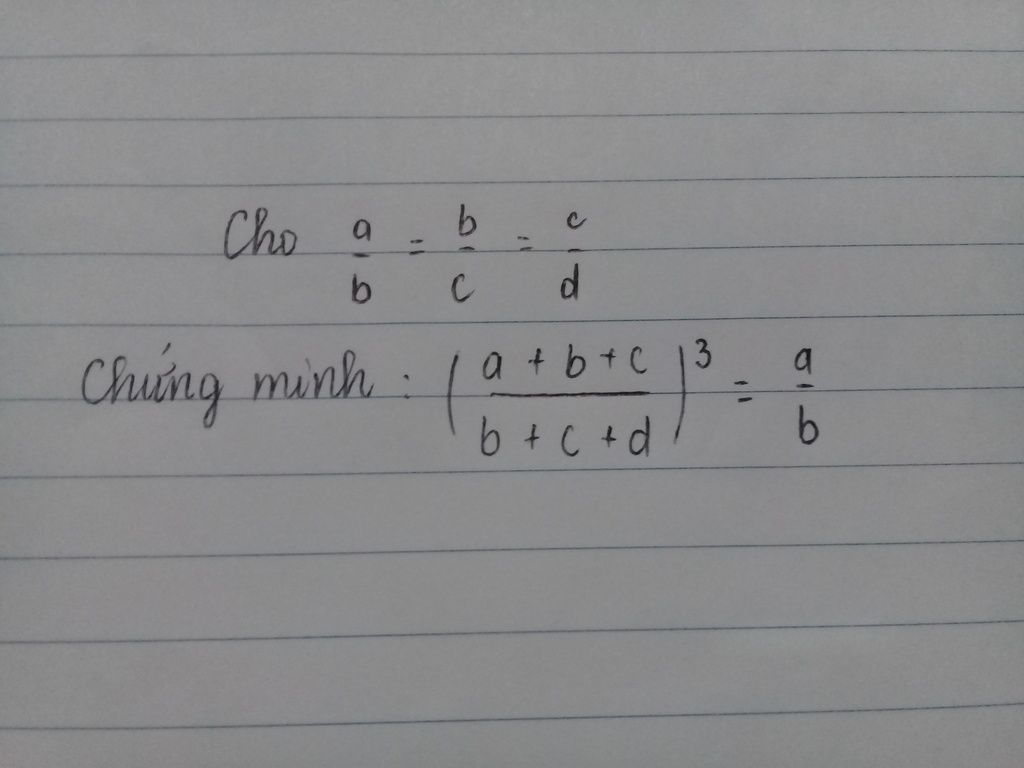 Cho a/b = b/c = c/d
Chứng minh : ( (a + b + c)/(b + c + d) )³ = a/b